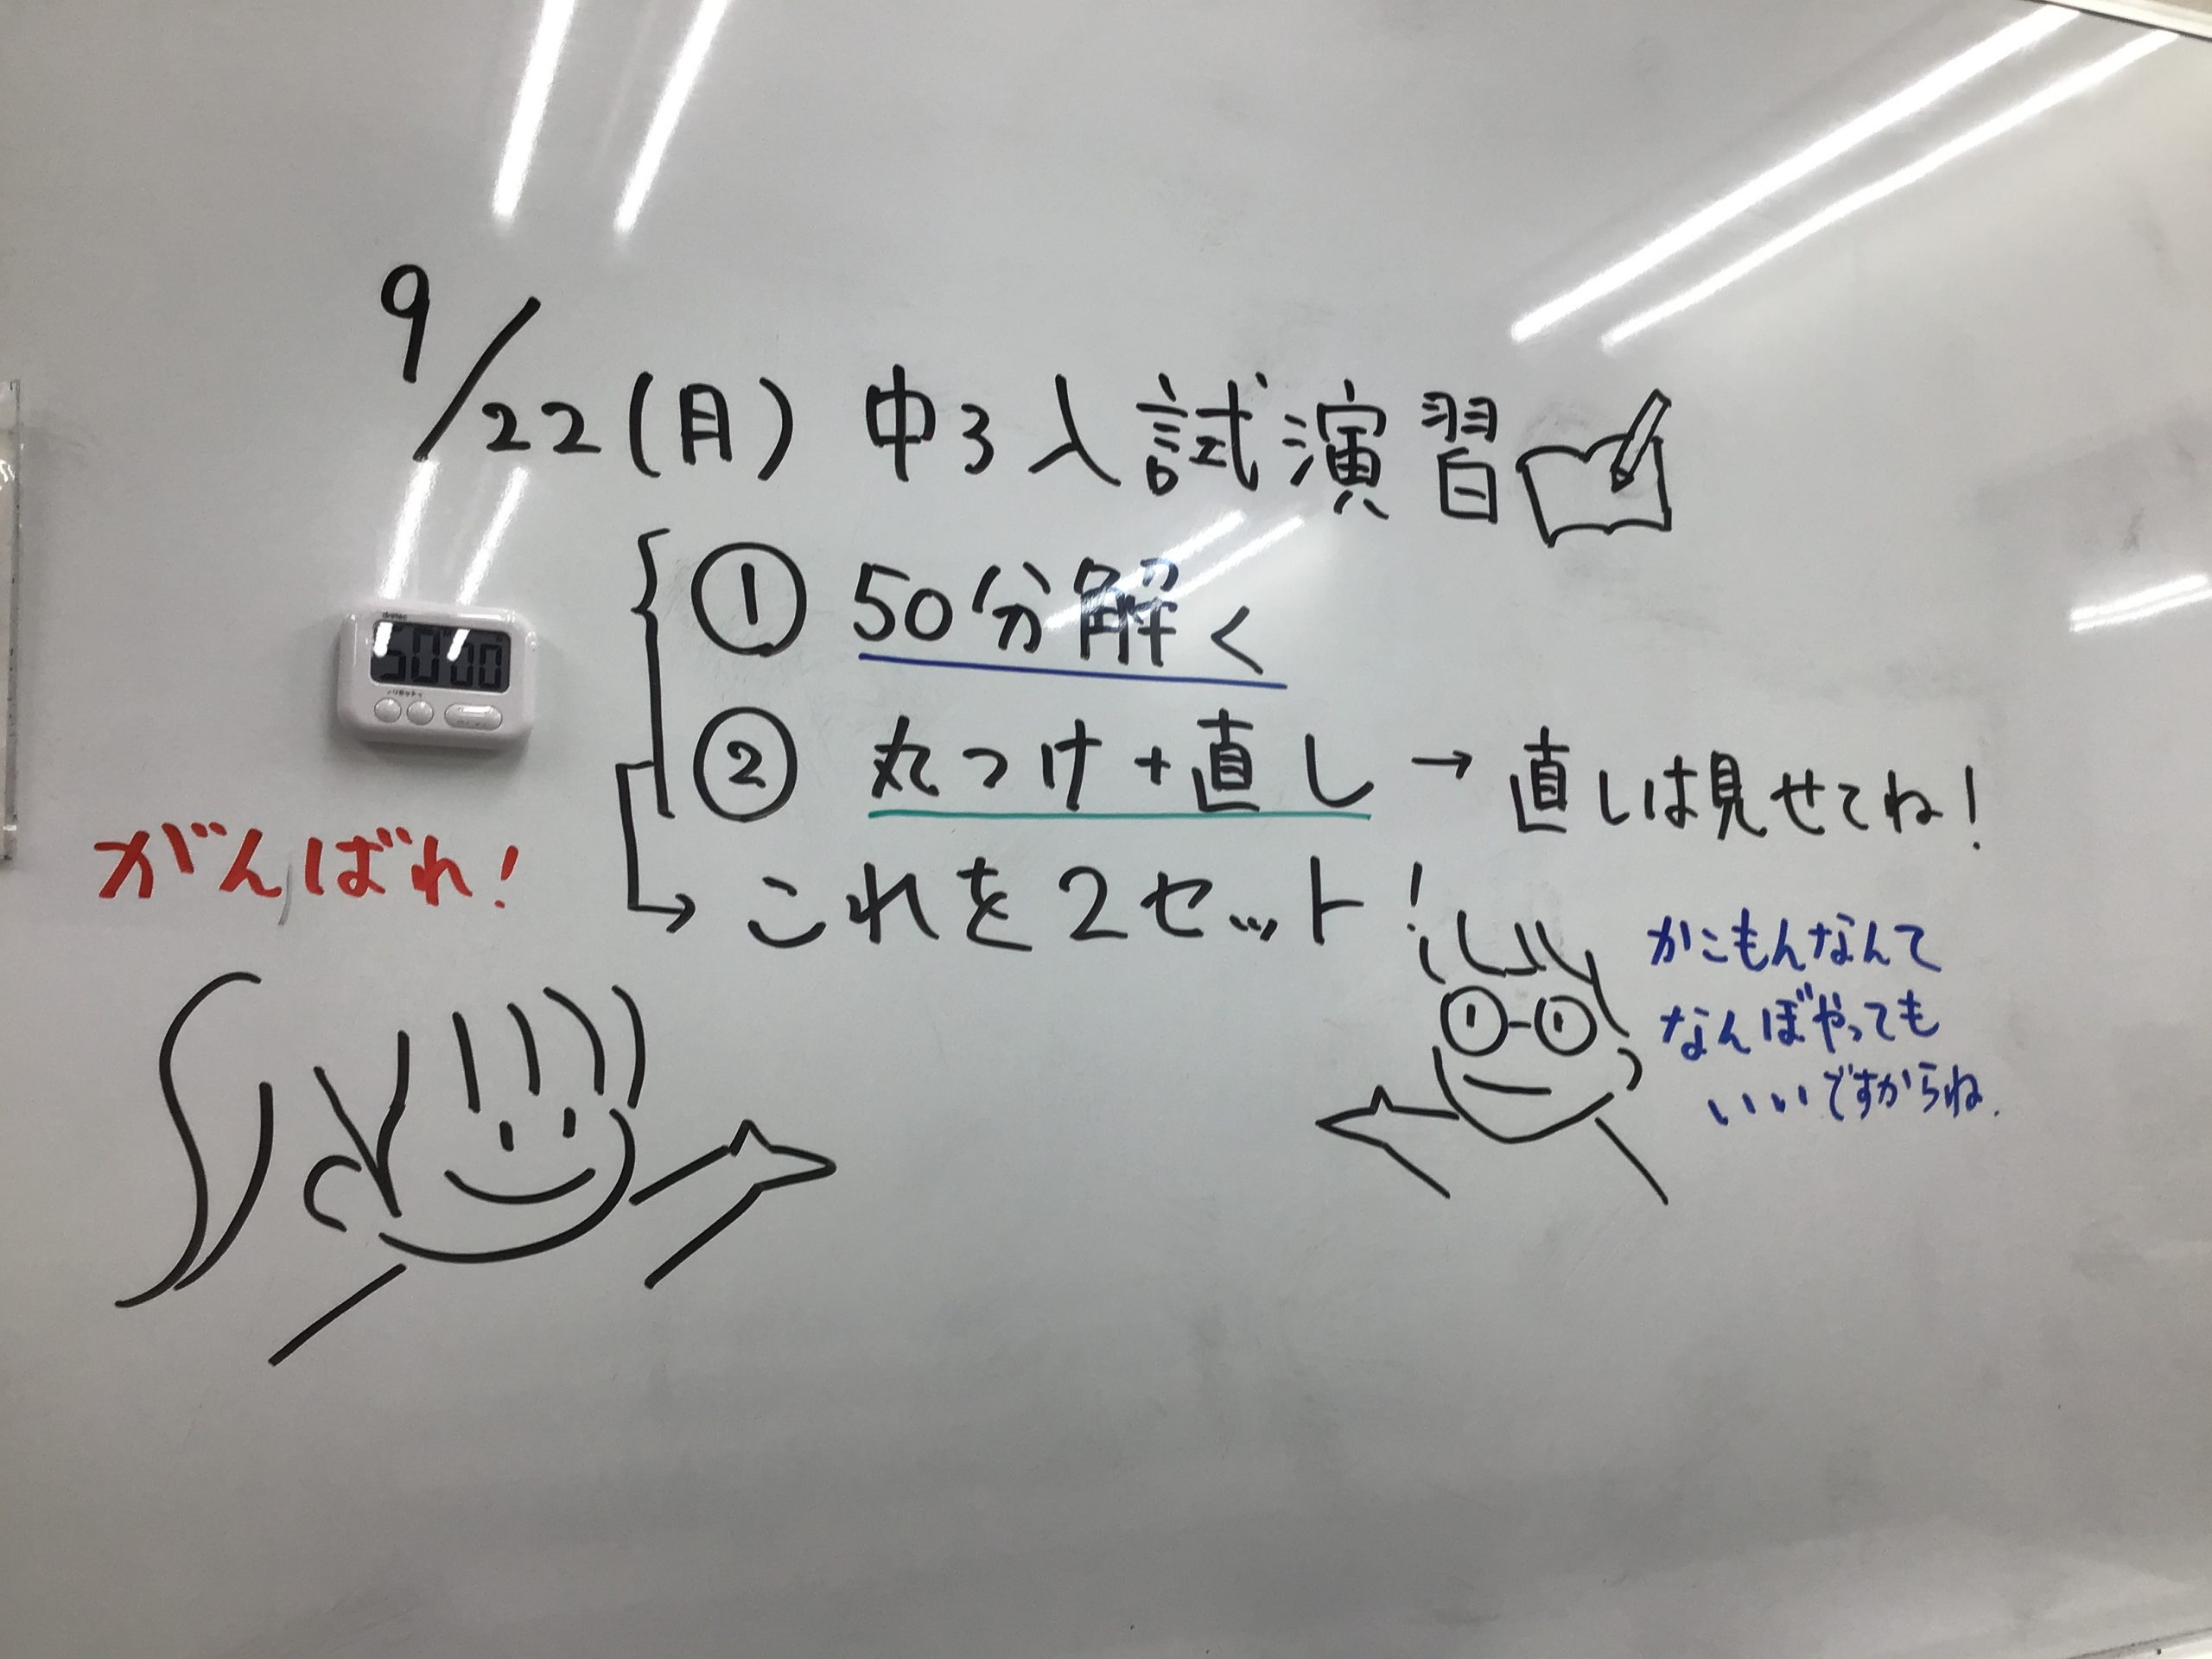 9/22(月) 中3入試演習
① 50分解く
② 丸つけ+直し → 直しは見せてね!
→ これを2セット!
がんばれ!
かこもんなんて
なんぼやっても
いいですからね.
dretec
50 00